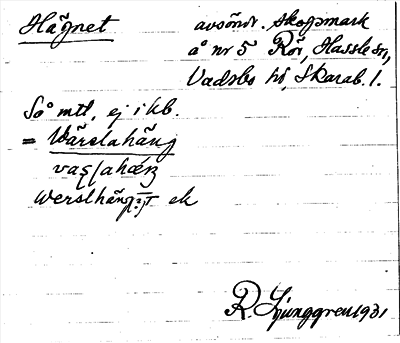 Hägnet avsöndr. skogsmark
å nr 5 Rör, Hassle sn,
Vadsbo hd, Skarab. l.
Så mtl, ej i kb.
= Värslahäng
werslhäng ek
R Ljunggren 1931